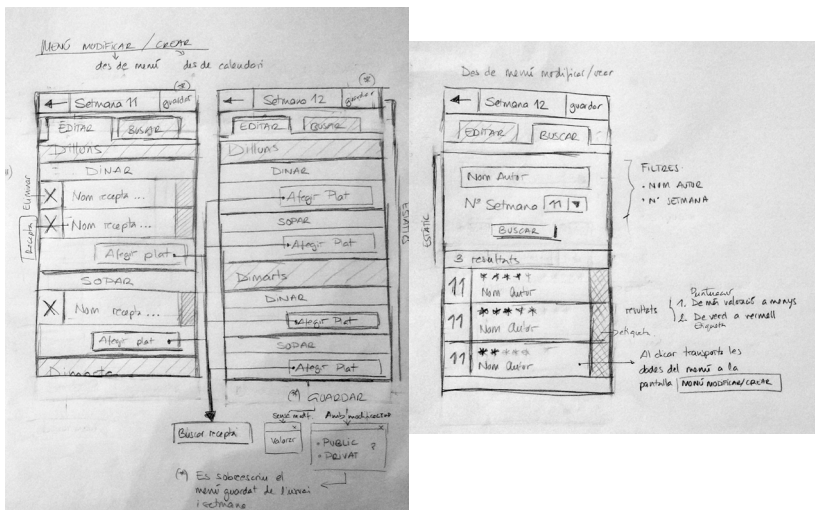 MENÚ MODIFICAR / CREAR
des de menú des de calendari
(*)
← Setmana 11 guardar
EDITAR BUSCAR
Dilluns
DINAR
X Nom recepta ...
X Nom recepta ...
Afegir plat
SOPAR
X Nom recepta ...
Afegir plat
Dimarts
Eliminar
Recepta
(*)
← Setmana 12 guardar
EDITAR BUSCAR
Dilluns
DINAR
Afegir Plat
SOPAR
Afegir Plat
Dimarts
DINAR
Afegir Plat
SOPAR
Afegir Plat
(*) GUARDAR
Sense modif. Amb modificacions
Buscar recepta
Valorar
X
X
• PUBLIC
• PRIVAT
?
(*) Es sobrescriu el
menú guardat de l'usuari
i setmana
Des de menú modificar/crear
← Setmana 12 guardar
EDITAR BUSCAR
ESTÀTIC
Nom Autor
Nº Setmana 11 ▼
BUSCAR
FILTRES:
• NOM AUTOR
• Nº SETMANA
3 resultats
11 *****
Nom Autor
11 *****
Nom Autor
11 *****
Nom Autor
resultats
Puntuació
1. De més valoració a menys
2. De verd a vermell
Etiqueta
etiqueta
Al clicar transporta les
dades del menú a la
pantalla MENÚ MODIFICAR/CREAR